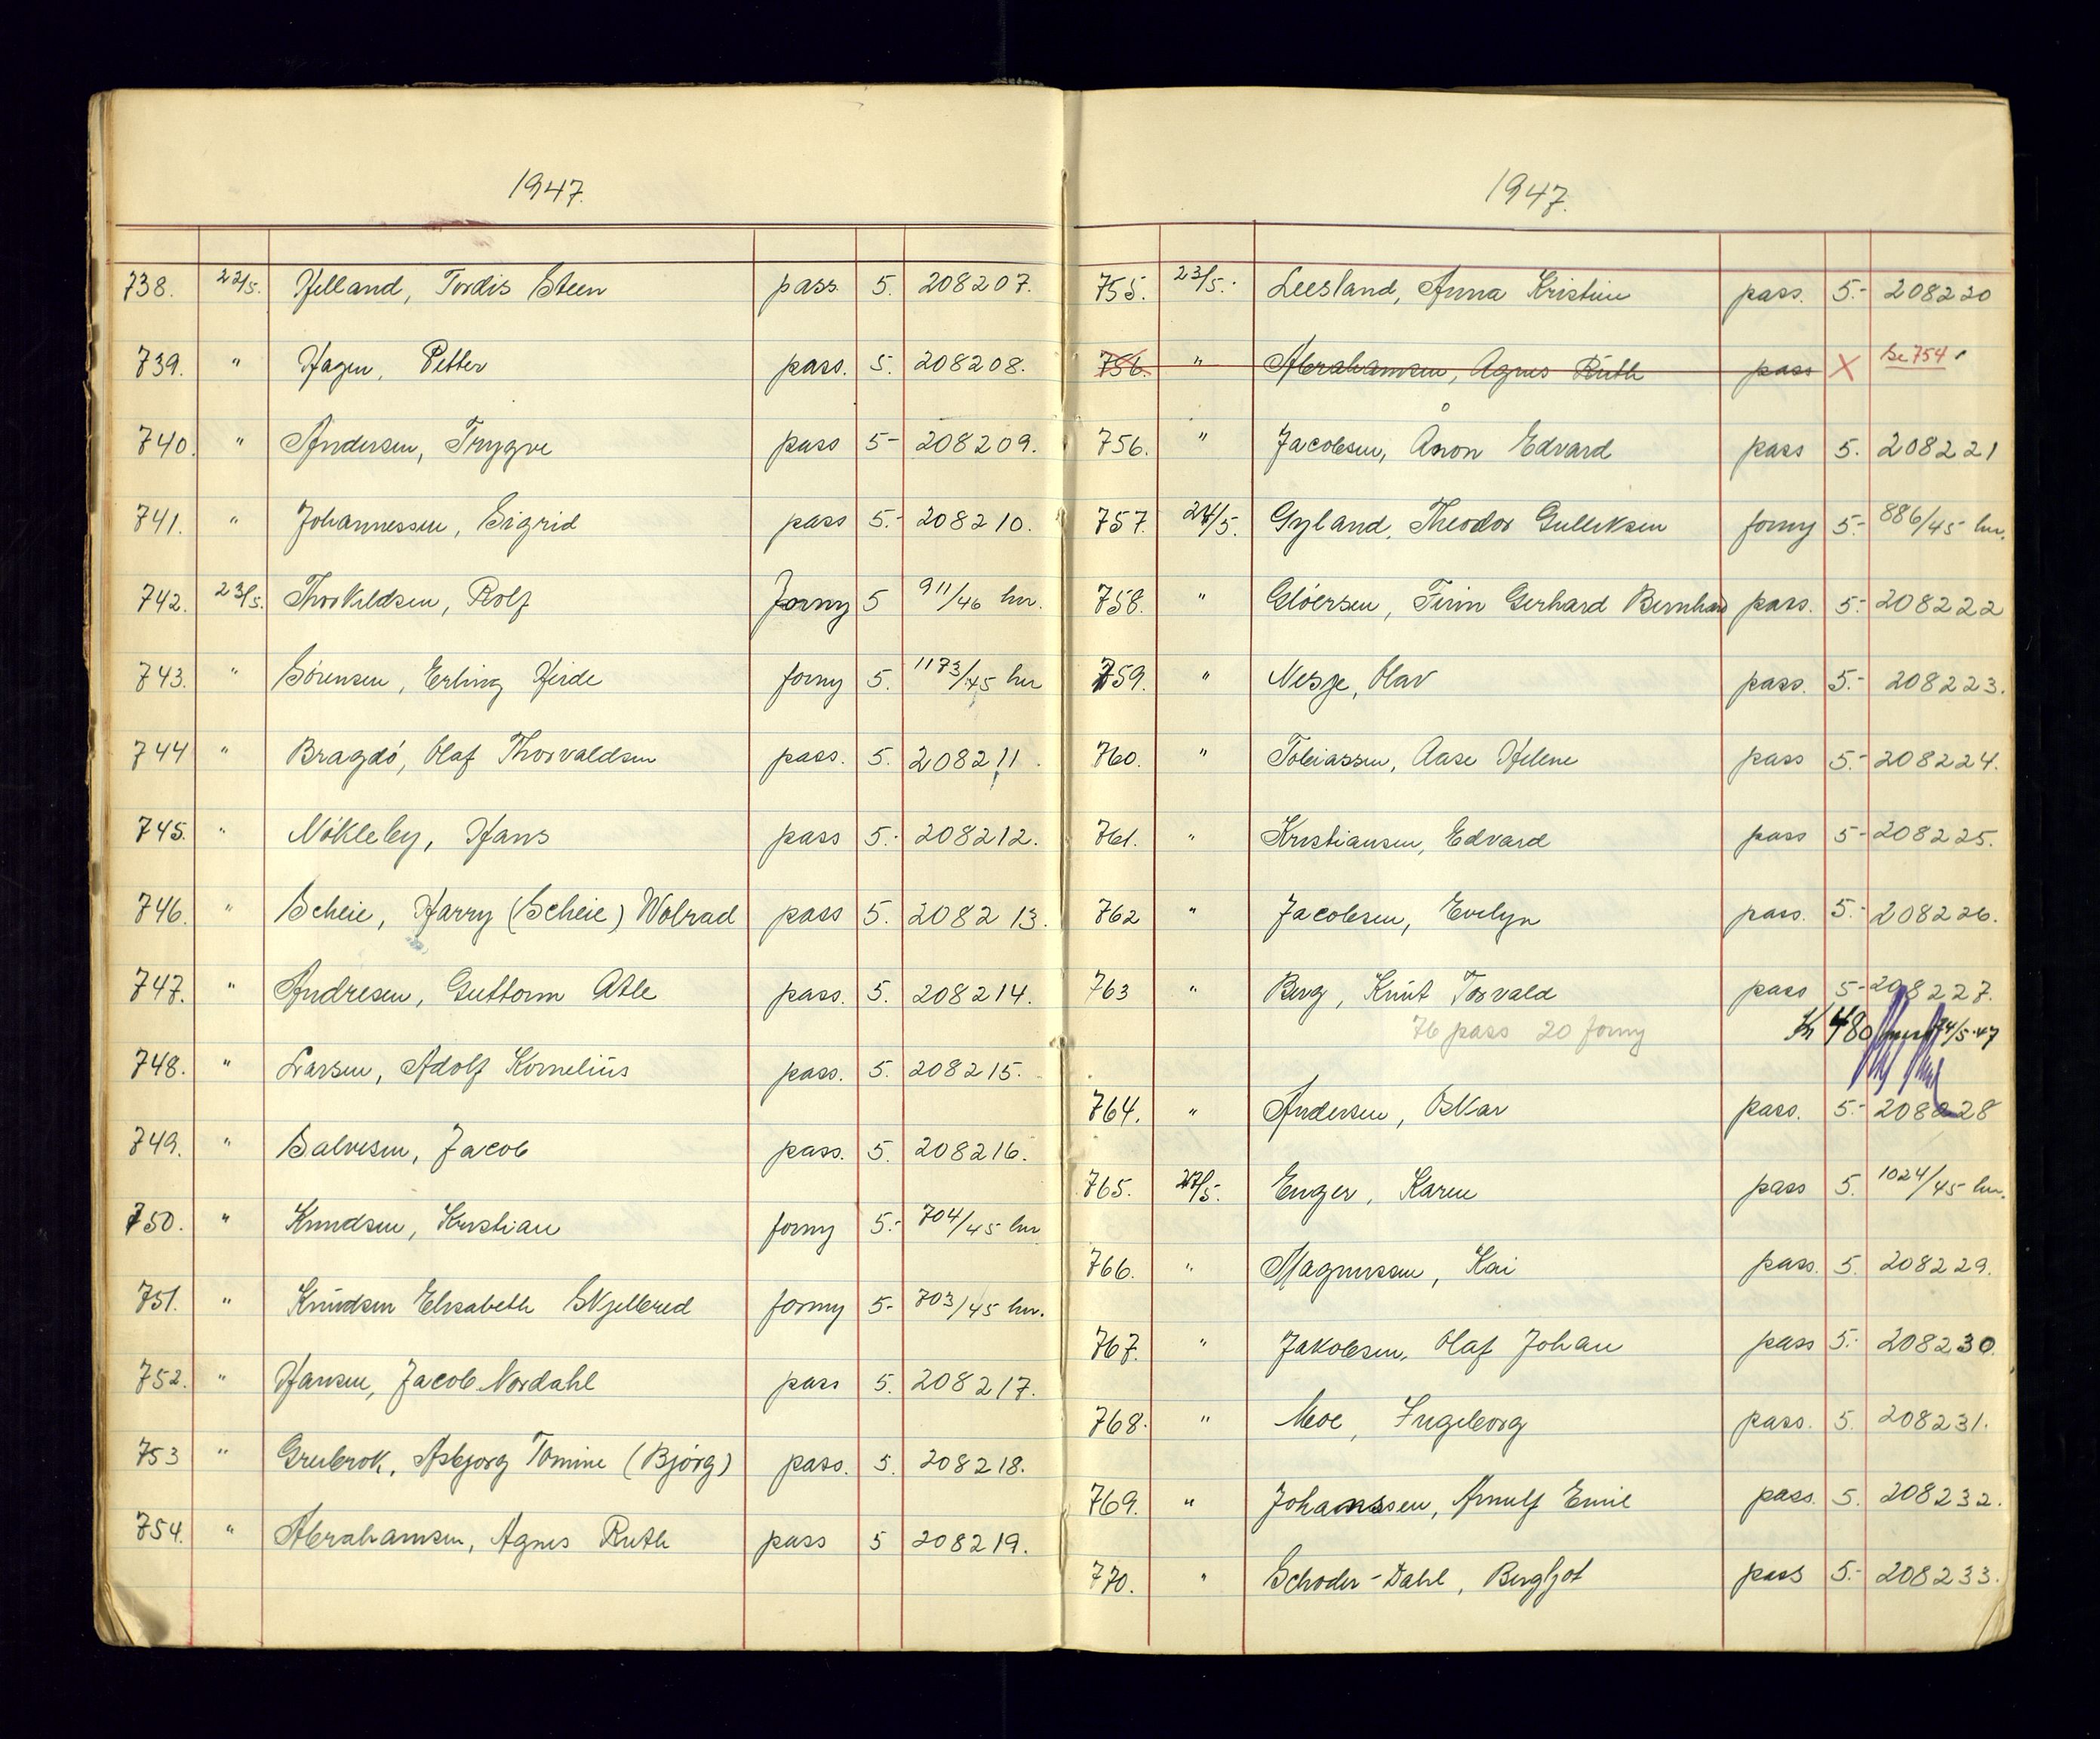 1947.
738. 22/5. Helland, Tordis Steen pass. 5. 208207.
739. " Hagen, Petter pass. 5. 208208.
740. " Andersen, Trygve pass 5- 208209.
741. " Johannessen, Sigrid pass 5.- 208210.
742. 23/5. Thorkildsen, Rolf Forny 5 911/46 hm.
743. " Sørensen, Erling Heide forny 5. 1173/45 hm
744 " Bragdø, Olaf Thorvaldsen pass. 5. 208211.
745. " Nøkleby, Hans pass 5.- 208212.
746. " Scheie, Harry (Scheie) Wolrad pass 5. 208213.
747. " Andresen, Guttorm Atle pass. 5. 208214.
748. " Larsen, Adolf Kornelius pass. 5. 208215.
749. " Salvesen, Jacob pass. 5. 208216.
750. " Knudsen, Kristian forny 5.- 704/45 hm
751. " Knudsen Elisabeth Skjelbred forny 5- 703/45 hm.
752. " Hansen, Jacob Nordahl pass 5. 208217.
753 " Grubrok, Asbjørg Tomine (Bjørg) pass. 5. 208218.
754. " Abrahamsen, Agnes Ruth pass 5 208219.
1947.
755. 23/5.- Leesland, Anna Kristine pass. 5.- 208220
756. " Abrahamsen, Agnes Ruth pass X Se 754
756. " Jacobsen, Ånon Edvard pass 5. 208221
757. 24/5. Gyland, Theodor Gulliksen forny 5- 886/45 hm.
758. " Gløersen, Finn Gerhard Bernhard pass. 5.- 208222
759. " Nesje, Olav pass. 5.- 208223.
760. " Tobiassen, Aase Helene pass 5.- 208224.
761. " Kristiansen, Edvard pass 5- 208225.
762 " Jacobsen, Evelyn pass. 5.- 208226.
763 " Berg, Knut Torvald pass 5- 208227.
76 pass 20 forny Kr 480 24/5-47
764. " Andersen, Oskar pass. 5.- 208228
765. 27/5. Enger, Karen pass 5. 1024/45 hm.
766. " Magnussen, Kai pass. 5. 208229.
767. " Jakobsen, Olaf Johan pass 5.- 208230.
768. " Moe, Ingeborg pass. 5. 208231.
769. " Johanssen, Arnulf Emil pass. 5. 208232.
770. " Schoder-Dahl, Bergljot pass 5.- 208233.